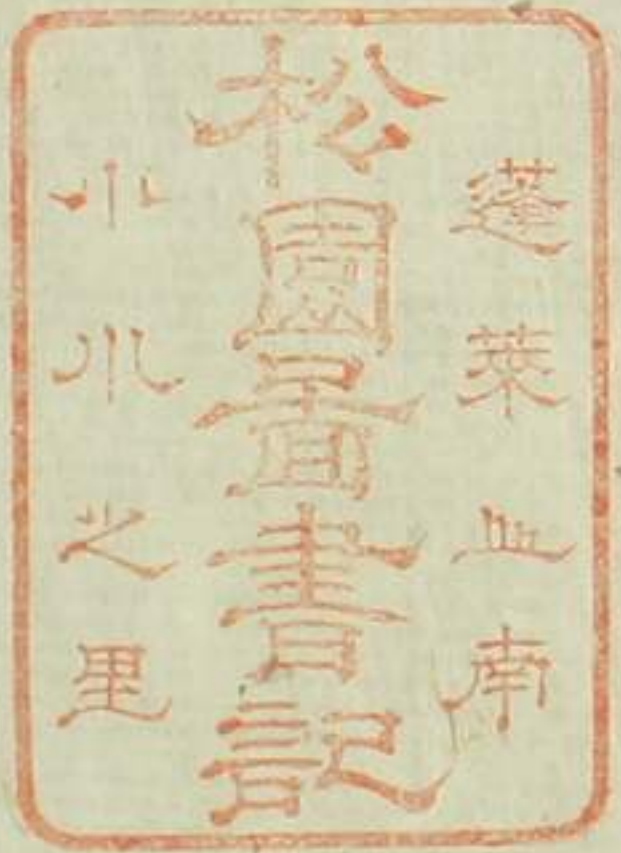 蓬萊之南
松園圖書記
小川之里